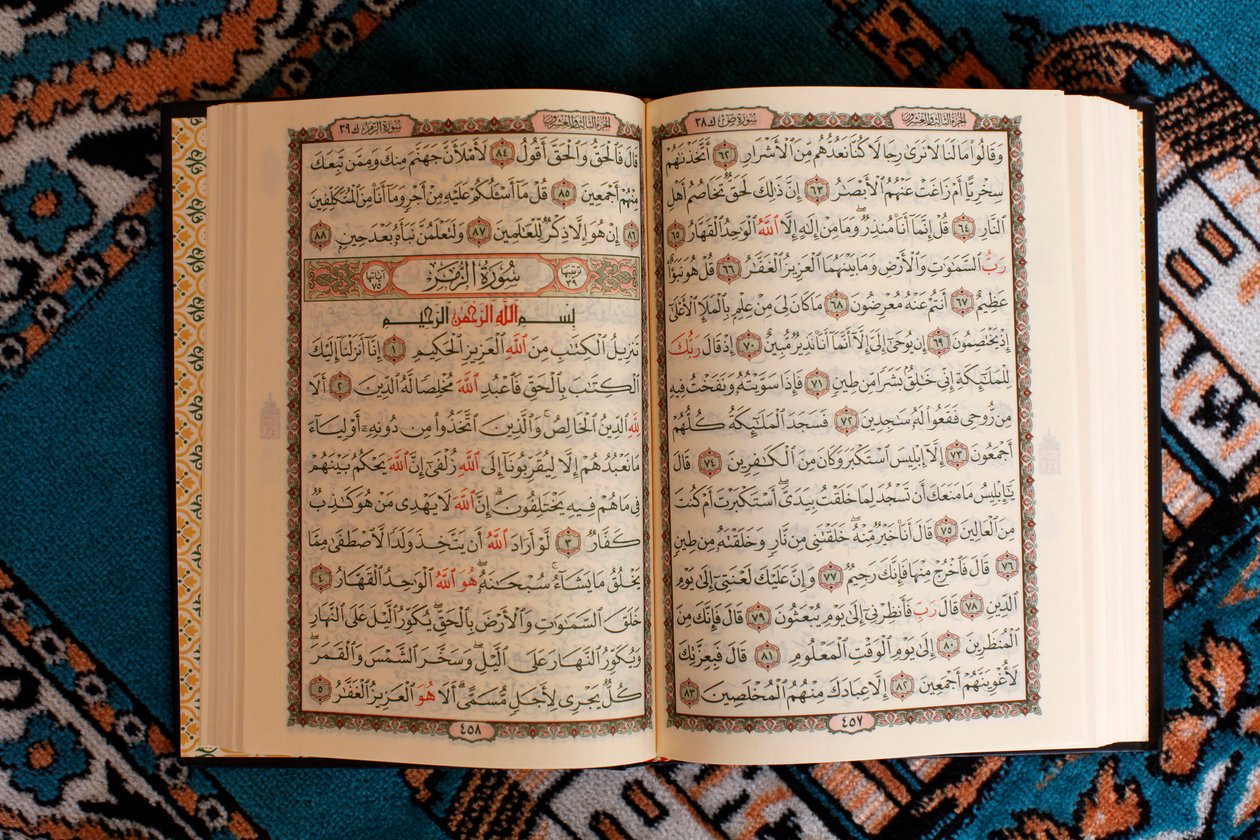 سورة ص ك ٣٨ الجزء الثالث والعشرون
وَقَالُوا۟ مَا لَنَا لَا نَرَىٰ رِجَالًا كُنَّا نَعُدُّهُم مِّنَ ٱلْأَشْرَارِ ٦٢ أَتَّخَذْنَٰهُمْ
سِخْرِيًّا أَمْ زَاغَتْ عَنْهُمُ ٱلْأَبْصَٰرُ ٦٣ إِنَّ ذَٰلِكَ لَحَقٌّ تَخَاصُمُ أَهْلِ
ٱلنَّارِ ٦٤ قُلْ إِنَّمَآ أَنَا۠ مُنذِرٌ ۖ وَمَا مِنْ إِلَٰهٍ إِلَّا ٱللَّهُ ٱلْوَٰحِدُ ٱلْقَهَّارُ ٦٥
رَبُّ ٱلسَّمَٰوَٰتِ وَٱلْأَرْضِ وَمَا بَيْنَهُمَا ٱلْعَزِيزُ ٱلْغَفَّٰرُ ٦٦ قُلْ هُوَ نَبَؤٌا۟
عَظِيمٌ ٦٧ أَنتُمْ عَنْهُ مُعْرِضُونَ ٦٨ مَا كَانَ لِىَ مِنْ عِلْمٍۭ بِٱلْمَلَإِ ٱلْأَعْلَىٰٓ
إِذْ يَخْتَصِمُونَ ٦٩ إِن يُوحَىٰٓ إِلَىَّ إِلَّآ أَنَّمَآ أَنَا۠ نَذِيرٌ مُّبِينٌ ٧٠ إِذْ قَالَ رَبُّكَ
لِلْمَلَٰٓئِكَةِ إِنِّى خَٰلِقٌۢ بَشَرًا مِّن طِينٍ ٧١ فَإِذَا سَوَّيْتُهُۥ وَنَفَخْتُ فِيهِ
مِن رُّوحِى فَقَعُوا۟ لَهُۥ سَٰجِدِينَ ٧٢ فَسَجَدَ ٱلْمَلَٰٓئِكَةُ كُلُّهُمْ
أَجْمَعُونَ ٧٣ إِلَّآ إِبْلِيسَ ٱسْتَكْبَرَ وَكَانَ مِنَ ٱلْكَٰفِرِينَ ٧٤ قَالَ
يَٰٓإِبْلِيسُ مَا مَنَعَكَ أَن تَسْجُدَ لِمَا خَلَقْتُ بِيَدَىَّ ۖ أَسْتَكْبَرْتَ أَمْ كُنتَ
مِنَ ٱلْعَالِينَ ٧٥ قَالَ أَنَا۠ خَيْرٌ مِّنْهُ ۖ خَلَقْتَنِى مِن نَّارٍ وَخَلَقْتَهُۥ مِن طِينٍ
٧٦ قَالَ فَٱخْرُجْ مِنْهَا فَإِنَّكَ رَجِيمٌ ٧٧ وَإِنَّ عَلَيْكَ لَعْنَتِىٓ إِلَىٰ يَوْمِ
ٱلدِّينِ ٧٨ قَالَ رَبِّ فَأَنظِرْنِىٓ إِلَىٰ يَوْمِ يُبْعَثُونَ ٧٩ قَالَ فَإِنَّكَ مِنَ
ٱلْمُنظَرِينَ ٨٠ إِلَىٰ يَوْمِ ٱلْوَقْتِ ٱلْمَعْلُومِ ٨١ قَالَ فَبِعِزَّتِكَ
لَأُغْوِيَنَّهُمْ أَجْمَعِينَ ٨٢ إِلَّا عِبَادَكَ مِنْهُمُ ٱلْمُخْلَصِينَ ٨٣
٤٥٧
سورة الزمر ك ٣٩ الجزء الثالث والعشرون
قَالَ فَٱلْحَقُّ وَٱلْحَقَّ أَقُولُ ٨٤ لَأَمْلَأَنَّ جَهَنَّمَ مِنكَ وَمِمَّن تَبِعَكَ
مِنْهُمْ أَجْمَعِينَ ٨٥ قُلْ مَآ أَسْـَٔلُكُمْ عَلَيْهِ مِنْ أَجْرٍ وَمَآ أَنَا۠ مِنَ ٱلْمُتَكَلِّفِينَ
٨٦ إِنْ هُوَ إِلَّا ذِكْرٌ لِّلْعَٰلَمِينَ ٨٧ وَلَتَعْلَمُنَّ نَبَأَهُۥ بَعْدَ حِينٍۭ ٨٨
ترتيبها ٣٩ سُورَةُ الزُّمَرِ آياتها ٧٥
بِسْمِ ٱللَّهِ ٱلرَّحْمَٰنِ ٱلرَّحِيمِ
تَنزِيلُ ٱلْكِتَٰبِ مِنَ ٱللَّهِ ٱلْعَزِيزِ ٱلْحَكِيمِ ١ إِنَّآ أَنزَلْنَآ إِلَيْكَ
ٱلْكِتَٰبَ بِٱلْحَقِّ فَٱعْبُدِ ٱللَّهَ مُخْلِصًا لَّهُ ٱلدِّينَ ٢ أَلَا
لِلَّهِ ٱلدِّينُ ٱلْخَالِصُ ۚ وَٱلَّذِينَ ٱتَّخَذُوا۟ مِن دُونِهِۦٓ أَوْلِيَآءَ
مَا نَعْبُدُهُمْ إِلَّا لِيُقَرِّبُونَآ إِلَى ٱللَّهِ زُلْفَىٰٓ إِنَّ ٱللَّهَ يَحْكُمُ بَيْنَهُمْ
فِى مَا هُمْ فِيهِ يَخْتَلِفُونَ ۗ إِنَّ ٱللَّهَ لَا يَهْدِى مَنْ هُوَ كَٰذِبٌ
كَفَّارٌ ٣ لَّوْ أَرَادَ ٱللَّهُ أَن يَتَّخِذَ وَلَدًا لَّٱصْطَفَىٰ مِمَّا
يَخْلُقُ مَا يَشَآءُ ۚ سُبْحَٰنَهُۥ ۖ هُوَ ٱللَّهُ ٱلْوَٰحِدُ ٱلْقَهَّارُ ٤
خَلَقَ ٱلسَّمَٰوَٰتِ وَٱلْأَرْضَ بِٱلْحَقِّ ۖ يُكَوِّرُ ٱلَّيْلَ عَلَى ٱلنَّهَارِ
وَيُكَوِّرُ ٱلنَّهَارَ عَلَى ٱلَّيْلِ ۖ وَسَخَّرَ ٱلشَّمْسَ وَٱلْقَمَرَ ۖ
كُلٌّ يَجْرِى لِأَجَلٍ مُّسَمًّى ۗ أَلَا هُوَ ٱلْعَزِيزُ ٱلْغَفَّٰرُ ٥
٤٥٨